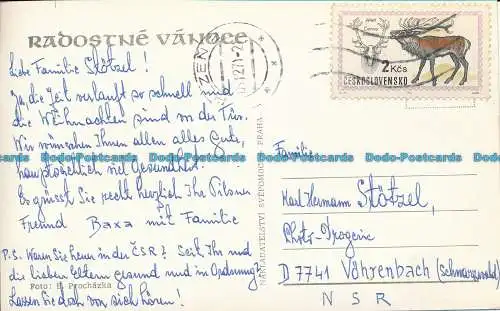 RADOSTNÉ VÁNOCE
Liebe Familie Stötzel!
Ja, die Zeit verlauft so schnell und
die Weihnachten sind vor der Tür.
Wir wünschen Ihnen allen alles Gute,
hauptsächlich viel Gesundheit.
Es grüsst Sie recht herzlich Ihr Pilsner
Freund Baxa mit Familie
P.S. Waren Sie heuer in der ČSR? Seit Ihr und
die lieben Eltern gesund und in Ordnung?
Lassen Sie doch von sich hören!
Foto: E. Procházka
NAKLADATELSTVÍ SVĚPOMOC PRAHA
2 Kčs
ČESKOSLOVENSKO
Familie
Karl Hermann Stötzel,
Photo-Drogerie
D 7741 Vöhrenbach (Schwarzwald)
N S R
Dodo-Postcards Dodo-Postcards Dodo-Postcards Dodo-Postcards Dodo-Postcards